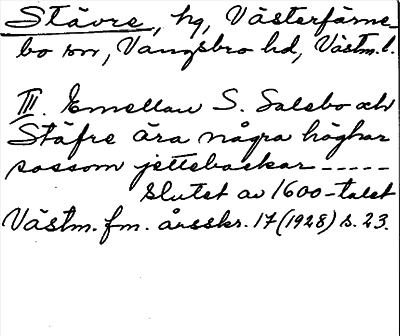 Stävre, hg, Västerfärne-
bo sn, Vangsbro hd, Västm. l.
III. Emellan S. Salebo och
Stäfre ära några högar
sassom jettebackar -----
Slutet av 1600-talet
Västm. fm. årsskr. 17 (1928) s. 23.